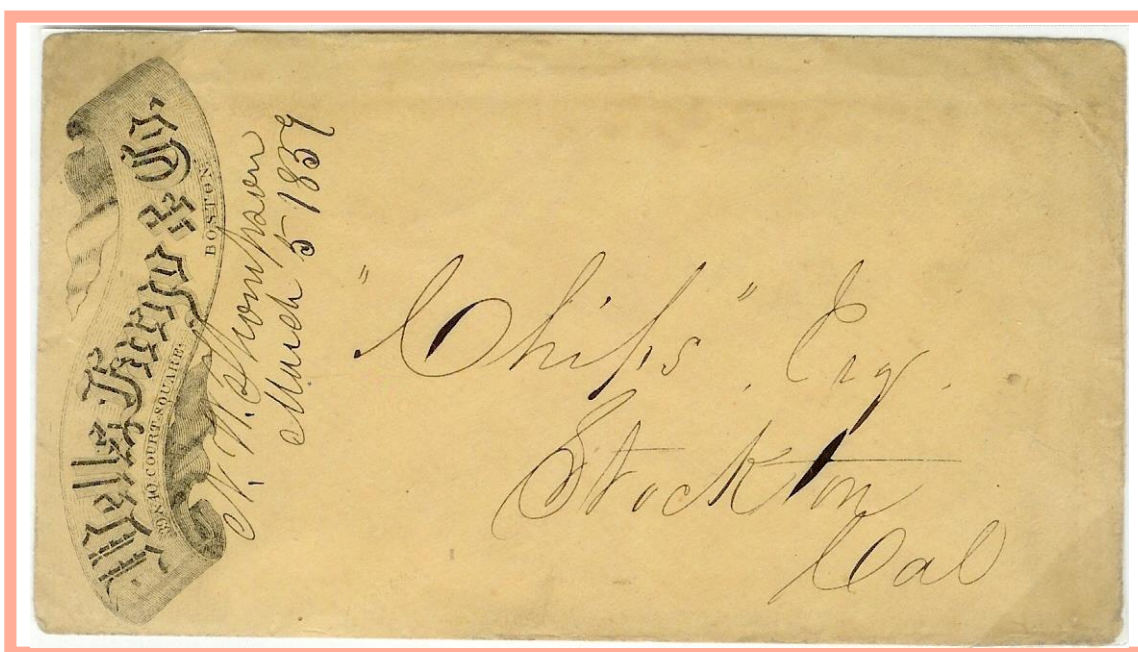 Wells, Fargo & Co.
39 & 40 COURT SQUARE,
BOSTON.
N. W. Thompson
March 5 1859
"Chips", Esq.
Stockton
Cal